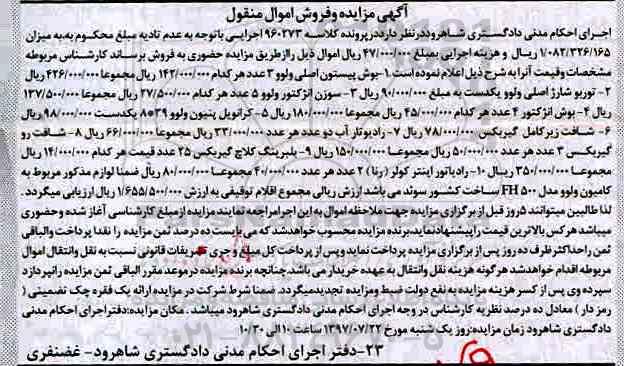 آگهی مزایده وفروش اموال منقول
اجرای احکام مدنی دادگستری شاهرود درنظر دارد درپرونده کلاسه ۹۶۰۲۷۳ اجرایی باتوجه به عدم تادیه مبلغ محکوم به، به میزان
۱/۰۸۲/۳۲۶/۱۶۵ ریال و هزینه اجرایی بمبلغ ۴۷/۰۰۰/۰۰۰ ریال اموال ذیل را ازطریق مزایده حضوری به فروش برساند کارشناس مربوطه
مشخصات وقیمت آنرا به شرح ذیل اعلام نموده است. ۱-بوش پیستون اصلی ولوو ۳ عدد هر کدام ۱۴۲/۰۰۰/۰۰۰ ریال مجموعا ۴۲۶/۰۰۰/۰۰۰ ریال
۲- توربو شارژ اصلی ولوو یکدست به مبلغ ۹۰/۰۰۰/۰۰۰ ریال ۳- سوزن انژکتور ولوو ۵ عدد هر کدام ۲۷/۵۰۰/۰۰۰ ریال مجموعا ۱۳۷/۵۰۰/۰۰۰
ریال ۴- بوش انژکتور ۴ عدد هر کدام ۴۵/۰۰۰/۰۰۰ ریال مجموعا ۱۸۰/۰۰۰/۰۰۰ ریال ۵- کرانویل پنیون ولوو ۸*۳۹ یکدست ۹۸/۰۰۰/۰۰۰ ریال
۶- شافت زیر کامل گیربکس ۷۸/۰۰۰/۰۰۰ ریال ۷- رادیو تار آب دو عدد هر عدد ۳۳/۰۰۰/۰۰۰ ریال مجموعا ۶۶/۰۰۰/۰۰۰ ریال ۸- شافت رو
گیربکس ۳ عدد هر عدد ۵۰/۰۰۰/۰۰۰ ریال مجموعا ۱۵۰/۰۰۰/۰۰۰ ریال ۹- بلبرینگ کلاچ گیربکس ۲۵ عدد قیمت هر کدام ۱۴/۰۰۰/۰۰۰ ریال
مجموعا ۳۵۰/۰۰۰/۰۰۰ ریال ۱۰- رادیاتور اینتر کولر (رنا) ۲ عدد هر عدد ۴۰/۰۰۰/۰۰۰ مجموعا ۸۰/۰۰۰/۰۰۰ ریال ضمنا لوازم مذکور مربوط به
کامیون ولوو مدل FH 500 ساخت کشور سوئد می باشد ارزش ریالی مجموع اقلام توقیفی به ارزش ۱/۶۵۵/۵۰۰/۰۰۰ ریال ارزیابی میگردد.
لذا طالبین میتوانند ۵روز قبل از برگزاری مزایده جهت ملاحظه اموال به این اجرا مراجعه نمایند مزایده از مبلغ کارشناسی آغاز شده وحضوری
میباشد هرکس بالاترین قیمت را پیشنهاد نماید، برنده مزایده محسوب خواهد شد که می بایست ده درصد ثمن مزایده را نقدا پرداخت والباقی
ثمن را حداکثر ظرف ده روز پس از برگزاری مزایده پرداخت نماید و پس از پرداخت کل مبلغ و جری تشریفات قانونی نسبت به نقل وانتقال اموال
مربوطه اقدام خواهد شد هرگونه هزینه نقل وانتقال به عهده خریدار می باشد. چنانچه برنده مزایده در موعد مقرر الباقی ثمن مزایده را نپردازد
سپرده وی پس از کسر هزینه مزایده به نفع دولت ضبط ومزایده تجدید میگردد. ضمنا شرط شرکت در مزایده ارائه یک فقره چک تضمینی (
رمز دار) معادل ده درصد نظریه کارشناس در وجه اجرای احکام مدنی دادگستری شاهرود میباشد . مکان مزایده: دفتر اجرای احکام مدنی
دادگستری شاهرود زمان مزایده: روز یک شنبه مورخ ۱۳۹۷/۰۷/۲۲ ساعت ۱۰ الی ۱۰/۳۰
۲۳-دفتر اجرای احکام مدنی دادگستری شاهرود- غضنفری